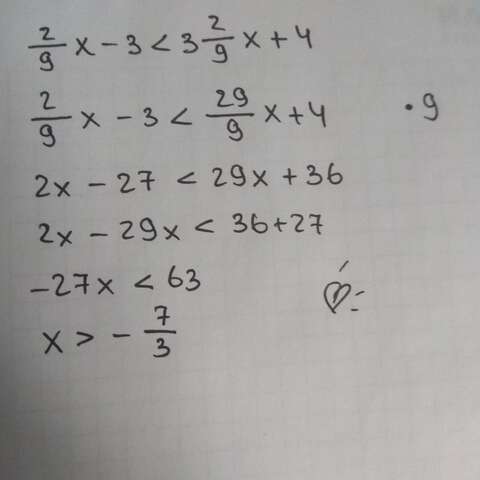 2/9 x - 3 < 3 2/9 x + 4
2/9 x - 3 < 29/9 x + 4 · 9
2x - 27 < 29x + 36
2x - 29x < 36 + 27
-27x < 63
x > - 7/3